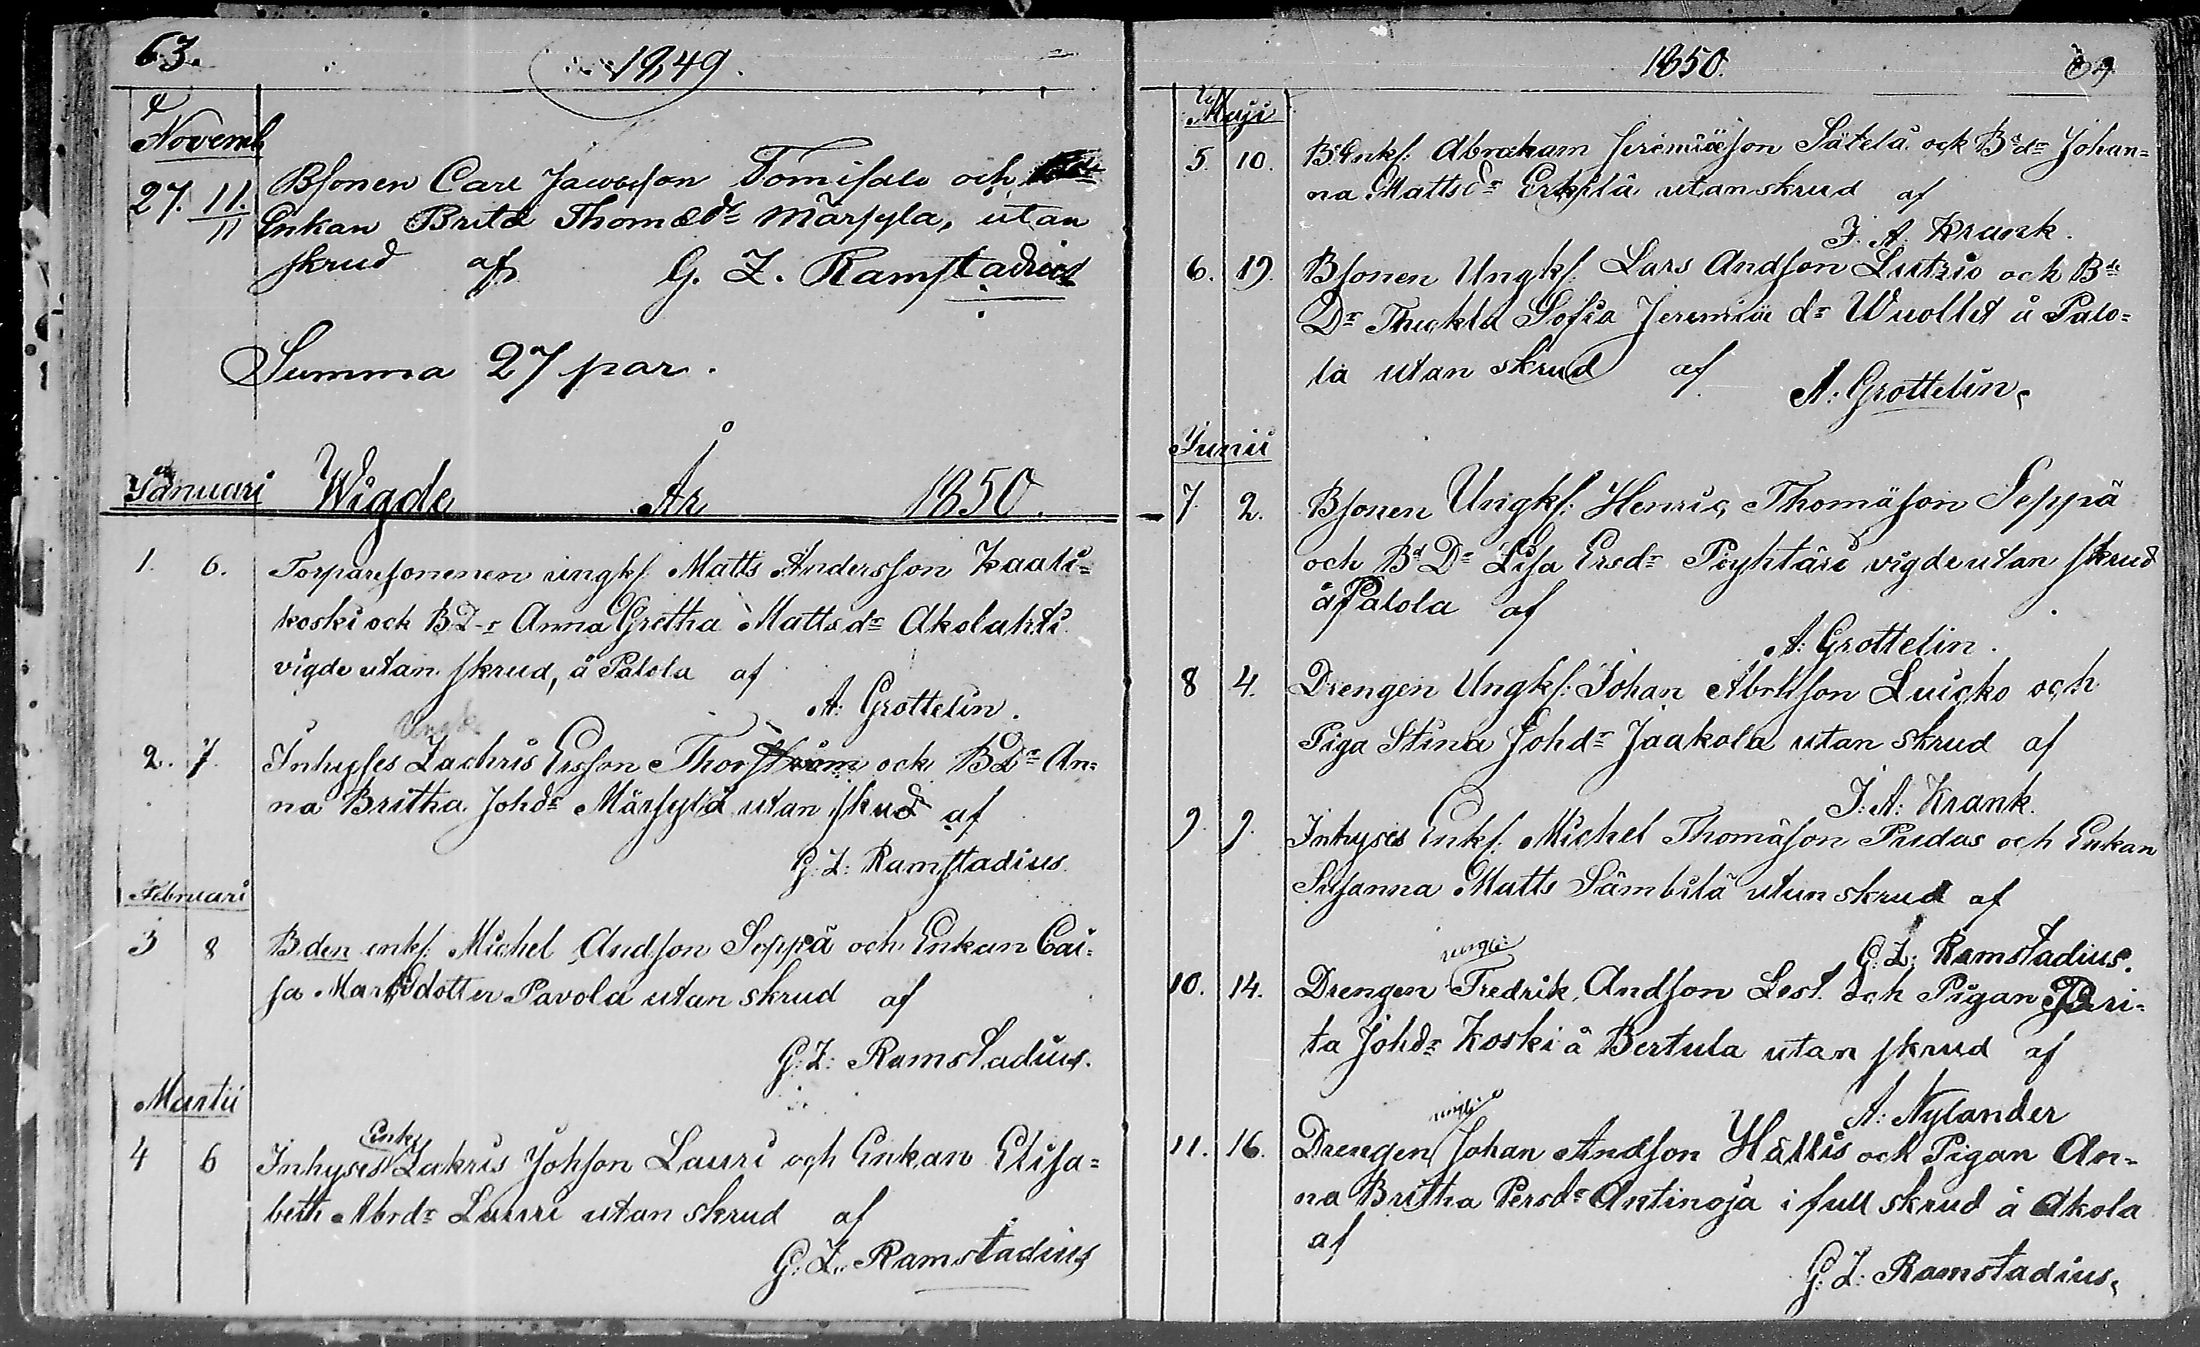 63.
1849.
Novemb
27. 11. Bsonen Carl Jacobsson Tomisalo och
11 Enkan Brita Thomædr Märsylä, utan
skrud af G. Z. Ramstadius
Summa 27 par.
Januari Wigde År 1850.
1. 6. Torparesonenen ungk: Matts Andersson Kaati=
koski och BD-r Anna Gretha Mattsdr Akolahti
vigde utan skrud, å Palola af
A: Grottelin.
Ungk
2. 7. Inhyses Zachris Ersson Thorström och BDr An=
na Britha Johdr Märsylä utan skrud af
G: Z: Ramstadius.
Februari
3 8 Bden enkl: Michel Andsson Seppä och Enkan Cai=
sa Marcdotter Pavola utan skrud af
G: Z: Ramstadius.
Martii
Enkl
4 6 Inhyses Zakris Johsson Lauri och Enkan Elisa=
beth Abrdr Lauri utan skrud af
G: Z: Ramstadius
1850. 64.
Maji
5. 10. Bd Enkl: Abraham Jeremiæson Sätelä och Bddr Johan=
na Mattsdr Erkilä utan skrud af
J. A. Krank.
6. 19. Bsonen Ungkl: Lars Andsson Lutzio och Bde
Dr Theckla Sofia Jeremiæ dr Wuollet å Palo=
la utan skrud af A: Grottelin.
Junii
7. 2. Bsonen Ungkl: Henric Thomäson Seppä
och Bd Dr Lisa Ersdr Pöyhtäri vigde utan skrud
å Palola af
A: Grottelin.
8 4. Drengen Ungkl: Johan Abrahsson Luicko och
Piga Stina Johdr Jaakola utan skrud af
J: A: Krank.
9. 9. Inhyses Enkl: Michel Thomäson Pudas och Enkan
Susanna Matts Sämbilä utan skrud af
G: Z: Ramstadius.
ungk:
10. 14. Drengen Fredrik Andsson Lest. och Pigan Bri=
ta Johdr Koski å Bertula utan skrud af
A: Nylander
ungk:
11. 16. Drengen Johan Andsson Hällis och Pigan An=
na Britha Persdr Antinoja i full skrud å Akola
af
G: Z: Ramstadius.